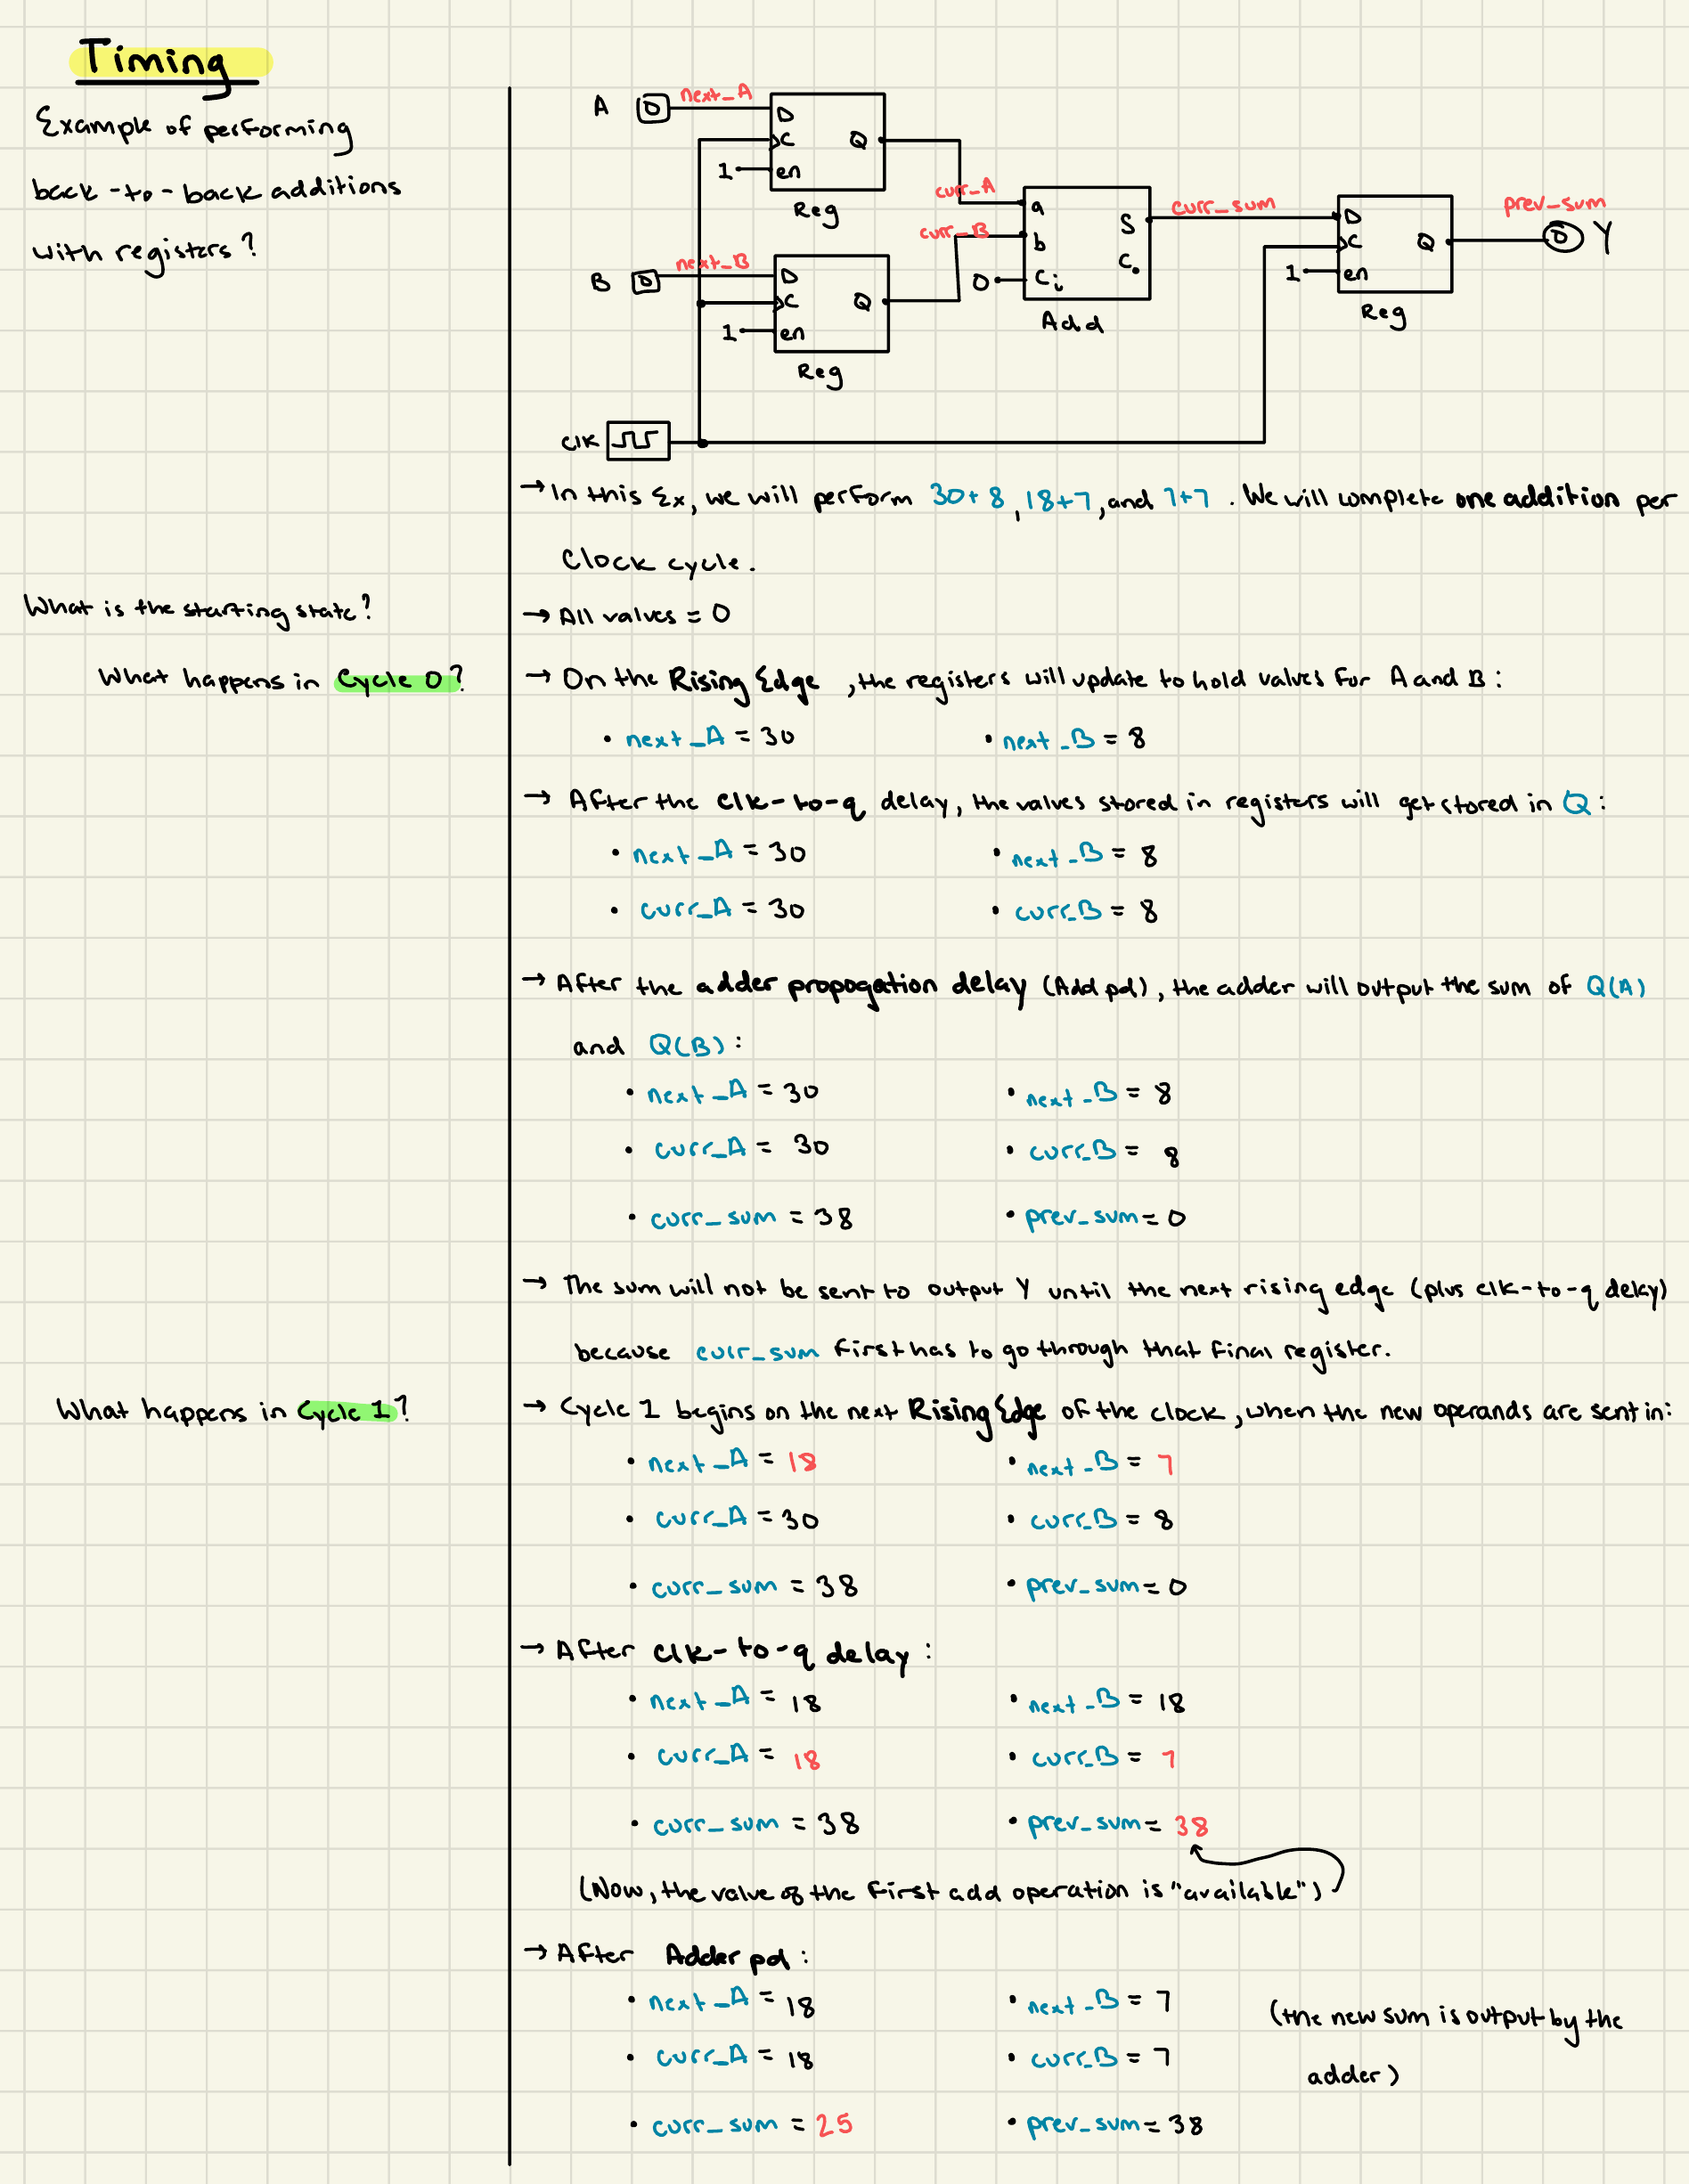 Timing
Example of performing
back-to-back additions
with registers?
A 0 next_A D
C Q
1 en
Reg
curr_A a
curr_B b S curr_sum D prev_sum 0 Y
0 Ci Co C Q
Add 1 en
Reg
B 0 next_B D
C Q
1 en
Reg
Clk
→ In this Ex, we will perform 30+8, 18+7, and 7+7. We will complete one addition per
Clock cycle.
What is the starting state?
→ All values = 0
What happens in Cycle 0?
→ On the Rising Edge, the registers will update to hold values for A and B:
• next_A = 30 • next_B = 8
→ After the clk-to-q delay, the values stored in registers will get stored in Q:
• next_A = 30 • next_B = 8
• curr_A = 30 • curr_B = 8
→ After the adder propogation delay (Add pd), the adder will output the sum of Q(A)
and Q(B):
• next_A = 30 • next_B = 8
• curr_A = 30 • curr_B = 8
• curr_sum = 38 • prev_sum = 0
→ The sum will not be sent to output Y until the next rising edge (plus clk-to-q delay)
because curr_sum first has to go through that final register.
What happens in Cycle 1?
→ Cycle 1 begins on the next Rising Edge of the clock, when the new operands are sent in:
• next_A = 18 • next_B = 7
• curr_A = 30 • curr_B = 8
• curr_sum = 38 • prev_sum = 0
→ After Clk-to-q delay:
• next_A = 18 • next_B = 18
• curr_A = 18 • curr_B = 7
• curr_sum = 38 • prev_sum = 38
(Now, the value of the first add operation is "available")
→ After Adder pd:
• next_A = 18 • next_B = 7 (the new sum is output by the
• curr_A = 18 • curr_B = 7 adder)
• curr_sum = 25 • prev_sum = 38